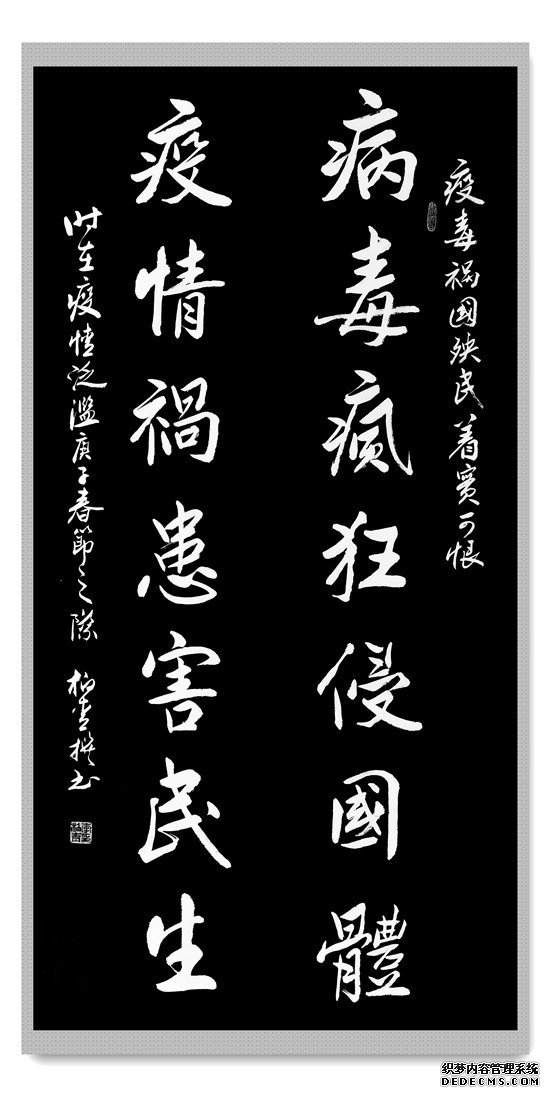 疫毒祸國殃民着实可恨
病毒瘋狂侵國體
疫情禍患害民生
时在疫情泛濫庚子春節之際 柏青撰书
织梦内容管理系统
DEDECMS.COM